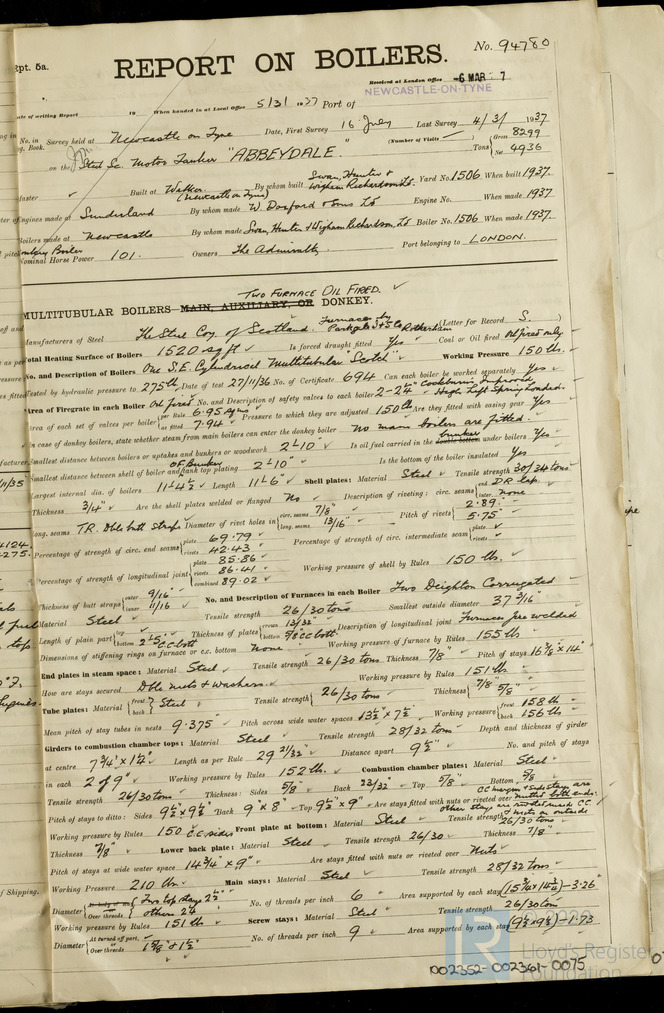 Rpt. 5a.
No. 94780
REPORT ON BOILERS.
Received at London Office -6 MAR 7
NEWCASTLE-ON-TYNE
Date of writing Report 19 When handed in at Local Office 5/3/1937 Port of
No. in Survey held at Newcastle on Tyne Date, First Survey 16 July Last Survey 4/3/1937
Reg. Book. (Number of Visits ) Gross 8299
on the Steel Sc. Motor Tanker "ABBEYDALE." Tons Net 4936
Master Built at Walker (Newcastle on Tyne) By whom built Swan, Hunter & Wigham Richardson Ltd. Yard No. 1506 When built 1937.
Engines made at Sunderland By whom made W. Doxford & Sons Ld Engine No. When made 1937
Boilers made at Newcastle By whom made Swan, Hunter & Wigham Richardson, Ld Boiler No. 1506 When made 1937.
Donkey Boiler
Nominal Horse Power 101. Owners The Admiralty Port belonging to LONDON.
TWO FURNACE OIL FIRED.
MULTITUBULAR BOILERS MAIN, AUXILIARY, OR DONKEY.
Manufacturers of Steel The Steel Coy. of Scotland Furnaces by Parkgate I & S Co Rotherham (Letter for Record S. )
Total Heating Surface of Boilers 1520 sq ft Is forced draught fitted Yes Coal or Oil fired Oil fired only
No. and Description of Boilers One S.E. Cylindrical Multitubular "Scotch" Working Pressure 150 lbs.
Tested by hydraulic pressure to 275 lb Date of test 27/11/36 No. of Certificate 694 Can each boiler be worked separately Yes
Area of Firegrate in each Boiler Oil fired No. and Description of safety valves to each boiler 2-2¼" Cockburns Improved High Lift Spring Loaded.
Area of each set of valves per boiler per Rule 6.95 as fitted 7.94 Pressure to which they are adjusted 150 lb Are they fitted with easing gear Yes
In case of donkey boilers, state whether steam from main boilers can enter the donkey boiler No main boilers are fitted.
Smallest distance between boilers or uptakes and bunkers or woodwork 2'10" Is oil fuel carried in the double bottom bunker under boilers Yes
Smallest distance between shell of boiler and tank top plating Of Bunker 2'10" Is the bottom of the boiler insulated Yes
Largest internal dia. of boilers 11'4½" Length 11'6" Shell plates: Material Steel Tensile strength 30/34 tons
Thickness ¾" Are the shell plates welded or flanged No Description of riveting: circ. seams end D.R. Lap. inter. none
long. seams T.R. Dble butt straps Diameter of rivet holes in circ. seams 7/8" long. seams 13/16" Pitch of rivets 2.89 5.75"
Percentage of strength of circ. end seams plate 69.79 rivets 42.43 Percentage of strength of circ. intermediate seam plate rivets
Percentage of strength of longitudinal joint plate 85.86 rivets 86.41 combined 89.02 Working pressure of shell by Rules 150 lb.
Thickness of butt straps outer 9/16" inner 11/16 No. and Description of Furnaces in each Boiler Two Deighton Corrugated
Material Steel Tensile strength 26/30 tons Smallest outside diameter 37 3/16"
Length of plain part top bottom Thickness of plates crown 13/32" bottom Description of longitudinal joint Furnaces fire welded
Dimensions of stiffening rings on furnace or c.c. bottom None Working pressure of furnace by Rules 155 lb
End plates in steam space: Material Steel Tensile strength 26/30 tons Thickness 7/8" Pitch of stays 16 7/8 x 14"
How are stays secured Dble nuts & washers Working pressure by Rules 151 lb
Tube plates: Material front back Steel Tensile strength 26/30 tons Thickness 7/8" 5/8"
Mean pitch of stay tubes in nests 9.375" Pitch across wide water spaces 13½" x 7½" Working pressure front 158 lb back 156 lb
Girders to combustion chamber tops: Material Steel Tensile strength 28/32 tons Depth and thickness of girder
at centre 7¾" x 1½" Length as per Rule 29 21/32" Distance apart 9½" No. and pitch of stays
in each 2 of 9" Working pressure by Rules 152 lb. Combustion chamber plates: Material Steel
Tensile strength 26/30 tons Thickness: Sides 5/8" Back 23/32" Top 5/8" Bottom 5/8
Pitch of stays to ditto: Sides 9½" x 9½" Back 9" x 8" Top 9½" x 9" Are stays fitted with nuts or riveted over C.C. margin & side stays are nutted both ends. Other stays are riveted inside C.C. & nuts on outside
Working pressure by Rules 150 C.C. sides Front plate at bottom: Material Steel Tensile strength 26/30 tons
Thickness 7/8" Lower back plate: Material Steel Tensile strength 26/30 Thickness 7/8"
Pitch of stays at wide water space 14¾" x 9" Are stays fitted with nuts or riveted over Nuts
Working Pressure 210 lb Main stays: Material Steel Tensile strength 28/32 tons
Diameter Over threads Two top stays others 2¼ No. of threads per inch 6 Area supported by each stay (15¾ x 14¾)-3.26"
Working pressure by Rules 151 lb Screw stays: Material Steel Tensile strength 26/30 tons
Diameter At turned off part, Over threads 1 5/8 & 1½" No. of threads per inch 9 Area supported by each stay (9½ x 9½)-1.73
LR
© 2020
Lloyd's Register
Foundation
002352-002361-0075